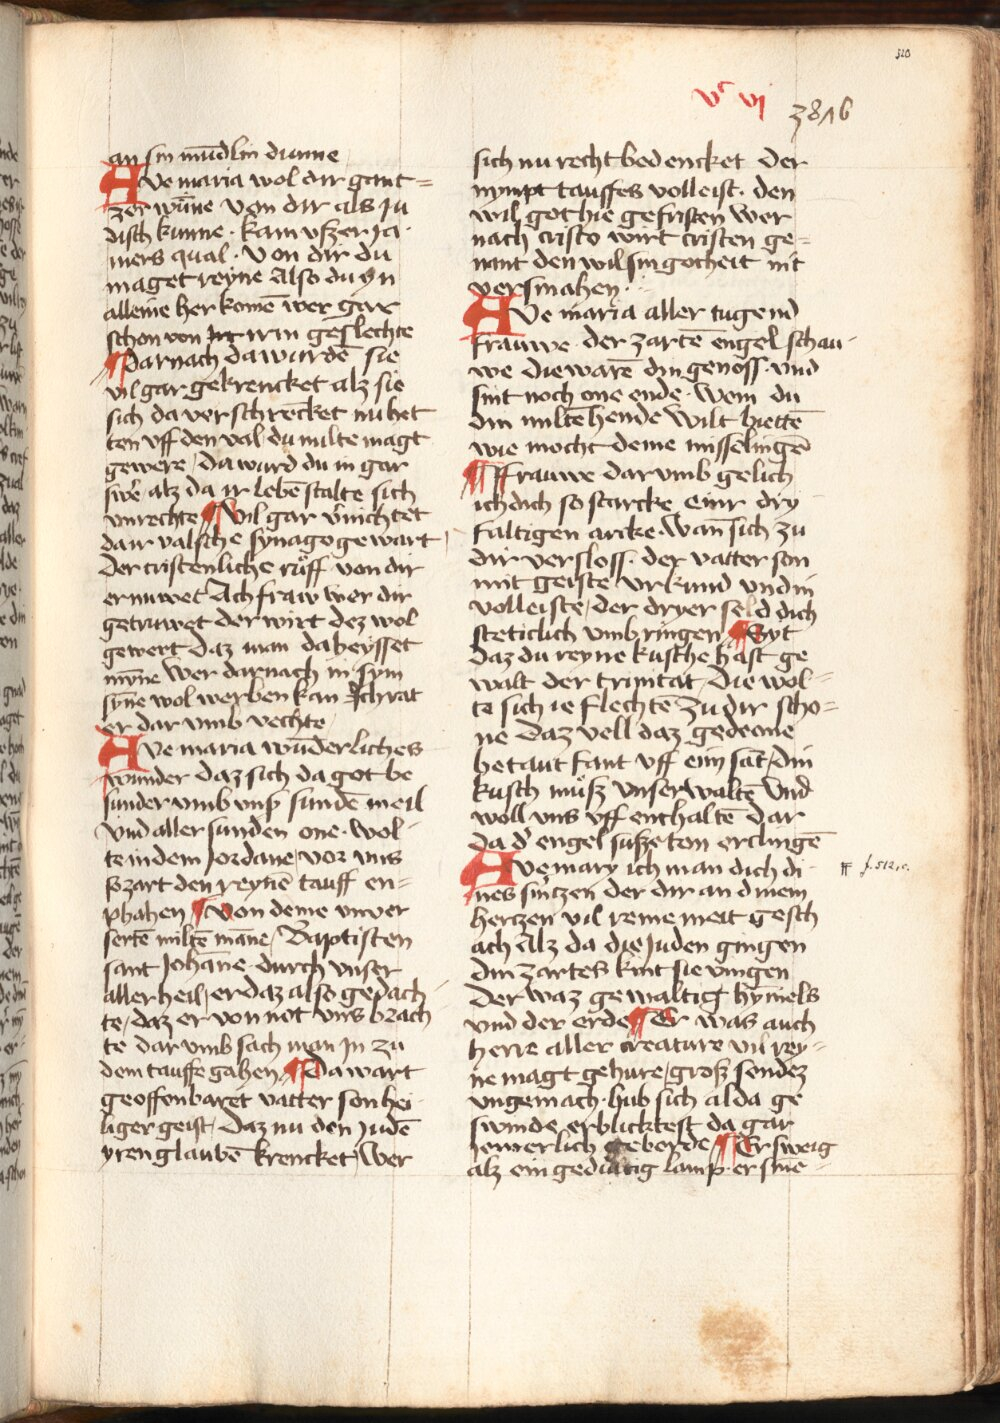 510
vc vj 3816
an sin mūdlin dinne
Ave maria wol dir gant=
zer wūne von dir als Ju
disch kunne · kam vßzer ja·
mers qual · Von dir du
maget reyne Also du yn
alleine her komē wer gar
schon von irm geslechte
Darnach da wurdē sie
vil gar gekrencket alz sie
sich da verschrencket nu het
ten vff den val du milte magt
gewere / da ward du in gar
swē alz da ir lebē stalte sich
vnrechte Vil gar v̄nichtet
da ir valsche synagoge wart
Der cristenliche rüff von dir
ernuwet Ach fraw wer dir
getruwet der wirt dez wol
gewert daz man da heysset
mȳne wer darnach in sym
sȳne wol werben kan Ich rat
er dar vmb vechte /
Ave maria wūderliches
wunder daz sich da got be
sunder vmb vnß sundē meil
vnd aller sunden one · wol
te in dem Jordane / vor vns
ß zart den reynē tauff en=
phahen Von deme vnver
sertē miltē māne / Baptisten
sant Johāne · durch vnser
aller heil / er daz also gedach
te / daz er von not vns brach
te dar vmb sach man In zu
dem tauffe gahen Da wart
geoffenbaret vatter son hei
liger geist / Daz nu den Judē
yren glaubē krencket / Wer
sich nu recht bedencket der
nympt tauffes volleist · den
wil got hie gefristen Wer
nach cristo wirt cristen ge=
nant den wil sin gotheit nit
versmahen ·
Ave maria aller tugend
frauwe · der zartē engel schau
we die warē din genoss · vnd
sint noch one ende · Wem du
din miltē hende wilt biettē
wie mocht deme misselingē
Frauwe dar vmb gelich
ich dich so starcke einr dry
faltigen arcke · wan sich zu
dir versloss · der vatter son
mit geiste vrkund vnd in
volleiste / der dryer seld dich
steticlich vmb ringen Syt
daz du reyne kusche hast ge
walt der trinitat / die wol=
te sich ie flechtē zu dir scho=
ne Daz vell daz gedeone
betaut fant vff eim sat / din
kusch müß vnser waltē Vnd
woll vns vff enthaltē dar
da d' engel susze ton erclingē
Ave mary ich man dich di
nes smˈtzen der dir an dinem
hertzen vil reine meit gesch
ach Alz da die Juden gingen
din zartes kint sie vingen
Der waz gewaltig hȳmels
vnd der erde Er was auch
herre aller creature vil rey=
ne magt gehure / groß sendez
vngemach · hub sich alda ge
swinde erblicktest da gar
jemerlich geberde Er sweig
alz ein gedultig lamp · er sine
f. 512, c.